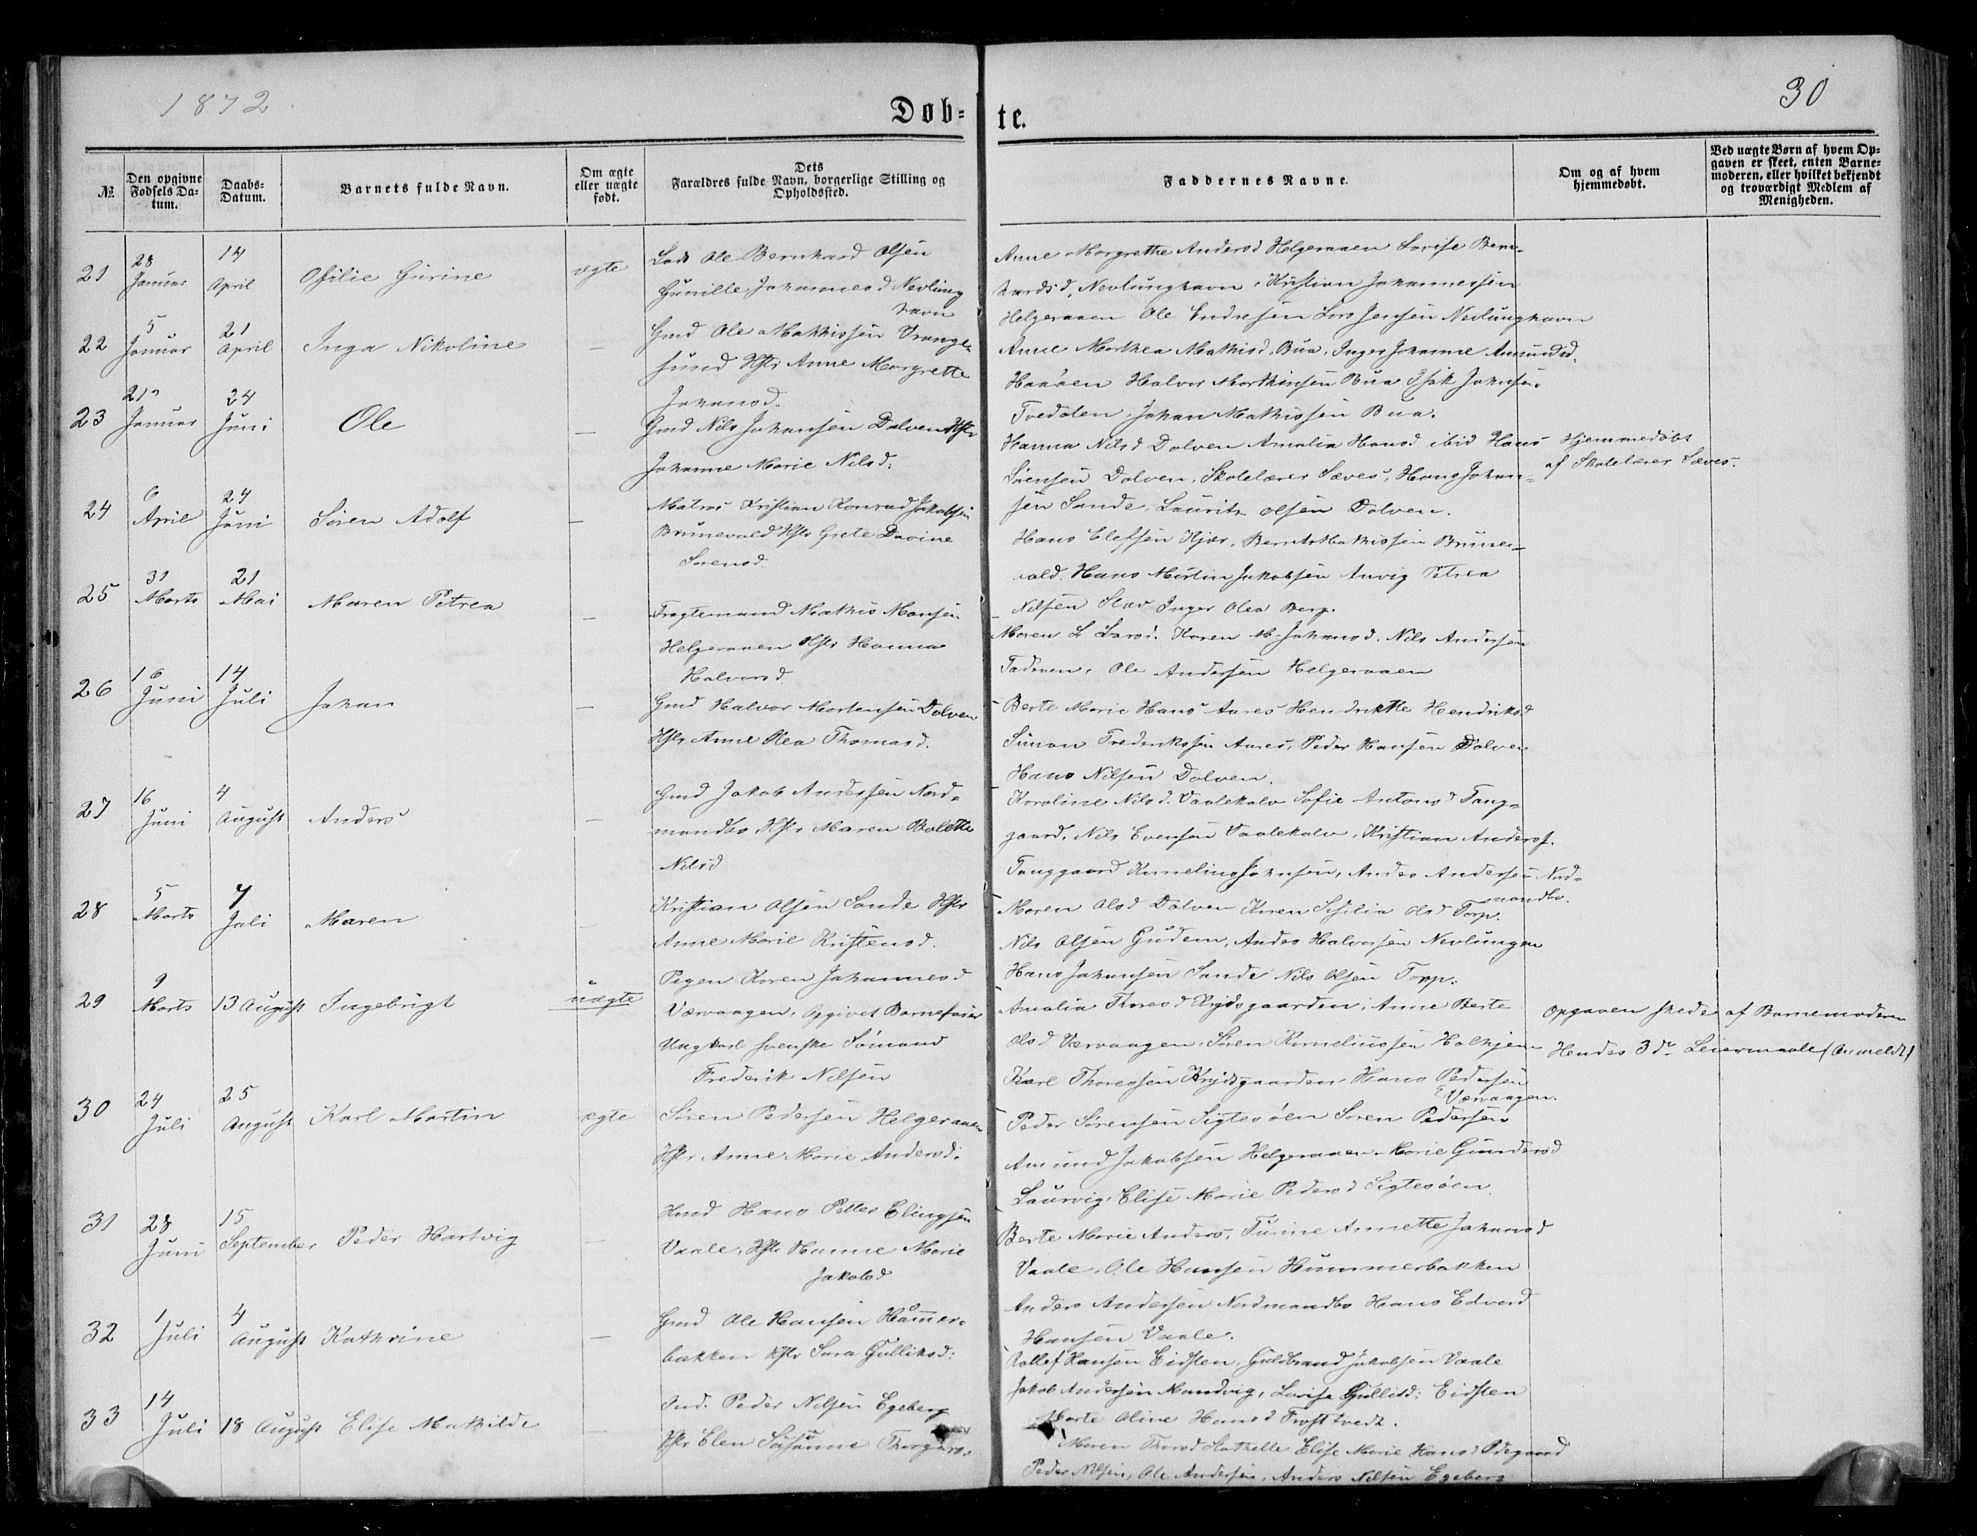 1872
Døb=
te.
30
№
Den opgivne Fødsels Datum.
Daabs-Datum.
Barnets fulde Navn.
Om ægte eller uægte født.
Dets Farældres fulde Navn, borgerlige Stilling og Opholdssted.
Faddernes Navne.
Om og af hvem hjemmedøbt.
Ved uægte Børn af hvem Opgaven er skeet, enten Barnemoderen, eller hvilket bekjendt og troværdigt Medlem af Menigheden.
21 28 Januar 14 April Ofilie Gurine ægte
Lods Ole Bernhard Olsen
Gunille Johannesd Nevlung
havn
Anne Margrethe Andersd Helgeraaen Lovise Bern-
hardsd, Nevlunghavn, Kristian Johannessen
Helgeraaen Ole Endresen Lars Jensen Nevlunghavn
22 5 Januar 21 April Inga Nikoline —
Gmd Ole Mathissen Vrange
sund Hstr Anne Margrette
Johansd.
Anne Marthea Mathisd. Bua, Inger Johanne Amundsd.
Haaøen Halvor Morthensen Bua Isak Johnsen
Tvedalen, Johan Mathissen Bua.
23 Januar 24 Juni Ole —
Gmd Nils Johansen Dolven Hstr
Johanne Marie Nilsd.
Hanna Nilsd Dolven Amalia Hansd ibid Hans
Sørensen Dolven, Skolelærer Sæves, Hans Johan-
sen Sande, Laurits Olsen Dolven.
Hjemmedøbt
af Skolelærer Sæves.
24 6 April 24 Juni Søren Adolf —
Matros Kristian Konrad Jakobsen
Brunevald Hstr Grete Davine
Sørensd.
Hans Elefsen Kjær, Bernt Mathissen Brune-
vald. Hans Martin Jakobsen Anvig Petrea
Nilsen Slav Inger Olea Berg.
25 31 Marts 21 Mai Maren Petrea —
Fragtemand Mathis Hansen
Helgeraaen Hstr Hanna
Halvorsd.
Maren L Larsd. Karen M Johansd. Nils Andersen
Ole Andersen Helgeraaen
26 16 Juni 14 Juli Johan —
Gmd Halvor Mortensen Dolven
Hstr Anne Olea Thomasd.
Berte Marie Hans Aares Hendrikke Hendriksd
Simon Frederiksen Aares, Peder Hansen Dolven
Hans Nilsen Dolven.
27 16 Juni 4 August Anders —
Gmd Jakob Andersen Nord-
mandbo Hstr Maren Bolette
Nilsd
Karoline Nilsd. Vaalekalv Sofie Antonsd Tang-
gaard, Nils Evensen Vaalekalv, Kristian Anders.
Tanggaard Johnsen, Anders Andersen Nord-
mandbo.
28 5 Marts 7 Juli Maren —
Kristian Olsen Sande Hstr
Anne Marie Kristensd.
Maren Olsd Dolven Karen Sesilia Olsd Torp.
Nils Olsen Gudem, Anders Halvorsen Nevlungen
Hans Johansen Sande Nils Olsen Torp.
29 9 Marts 13 August Ingebrigt uægte
Pigen Karen Johannesd
Værvaagen, Opgivet Barnefader
Ungkarl svenske Sømand
Frederik Nilsen
Amalia Thoresd Krydsgaarden, Anne Berte
Olsd Værvaagen, Søren Korneliussen Holkjem
Karl Thoresen Krydsgaarden Hans Pedersen
Værvaagen.
Opgaven skede af Barnemoderen
Hendes 3die Leiermaale (Anmeldt)
30 24 Juli 25 August Karl Martin ægte
Søren Pedersen Helgeraaen
Hstr Anne Marie Andersd.
Peder Sørensen Sigtesøen Søren Pedersen
Amund Jakobsen Helgeraaen Marie Gundersd
Laurvig, Elise Marie Pedersd Sigtesøen.
31 28 Juni 15 September Peder Hartvig —
Hmd Hans Petter Elingsen
Vaale, Hstr Hanne Marie
Jakobsd
Berte Marie Anders, Turine Annette Johansd
Vaale, Ole Hansen Hummerbakken
Anders Andersen Nordmandbo Hans Edvard
Hansen Vaale.
32 1 Juli 4 August Kathrine —
Gmd Ole Hansen Hummer-
bakken Hstr Sara Gulliksd.
Rollef Hansen Eidsten, Guldbrand Jakobsen Vaale
Jakob Andersen Mandvig, Lovise Gulliksd: Eidsten
Marte Oline Hansd Frosttvedt.
33 14 Juli 18 August Elise Mathilde —
Ind. Peder Nilsen Egeberg
Hstr Elen Susanne
Maren Thorsd Stathelle Elise Marie Hansd Ødegaard
Peder Nilsen, Ole Andersen, Anders Nilsen Egeberg